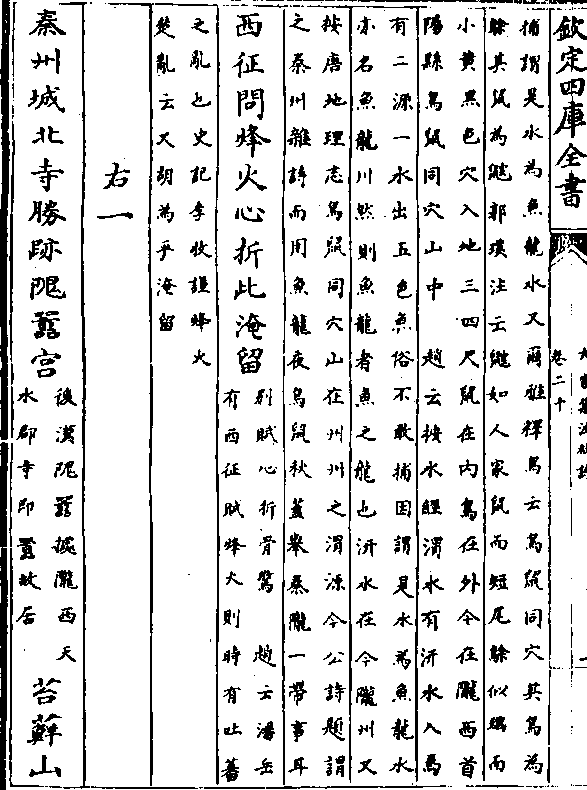 欽定四庫全書
卷二十
捕謂是水為魚龍水又爾雅釋鳥云鳥鼠同穴其鳥為
鵌其鼠為鼵郭璞注云鼵如人家鼠而短尾鵌似鵽而
小黄黑色穴入地三四尺鼠在内鳥在外今在隴西首
陽縣鳥鼠同穴山中　趙云按水經渭水有汧水入焉
有二源一水出五色魚俗不敢捕因謂是水為魚龍水
亦名魚龍川然則魚龍者魚之龍也汧水在今隴州又
按唐地理志鳥鼠同穴山在州州之渭源今公詩題謂
之秦州雜詩而用魚龍夜鳥鼠秋蓋舉秦隴一帶事耳
西征問烽火心折此淹留
別賦心折骨驚　趙云潘岳
有西征賦烽火則時有吐蕃
之亂也史記李牧謹烽火
楚亂云又胡為乎淹留
右一
秦州城北寺勝跡隗囂宮
後漢隗囂據隴西天
水郡寺即囂故居
苔蘚山